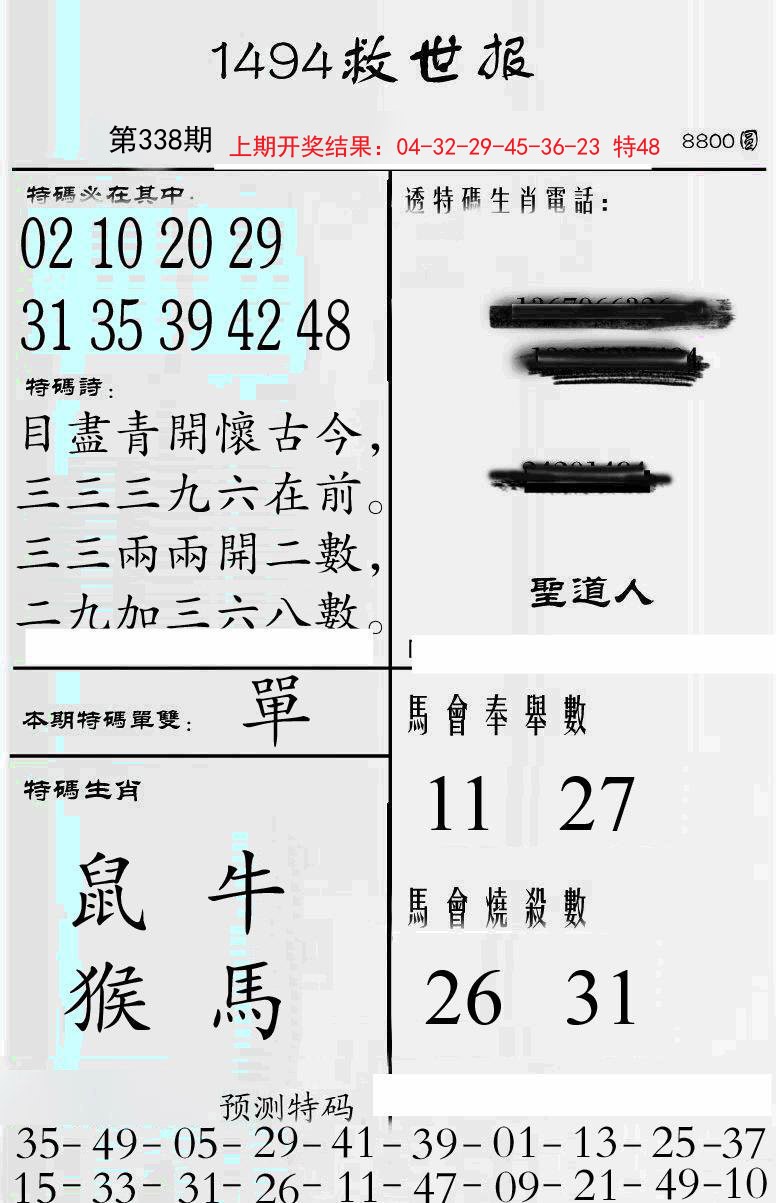 1494救世报
第338期
上期开奖结果：04-32-29-45-36-23 特48
8800圆
特碼必在其中：
02 10 20 29
31 35 39 42 48
特碼詩：
目盡青開懷古今，
三三三九六在前。
三三兩兩開二數，
二九加三六八數。
透特碼生肖電話：
聖道人
本期特碼單雙： 單
特碼生肖
鼠 牛
猴 馬
馬會奉舉數
11 27
馬會燒殺數
26 31
预测特码
35-49-05-29-41-39-01-13-25-37
15-33-31-26-11-47-09-21-49-10